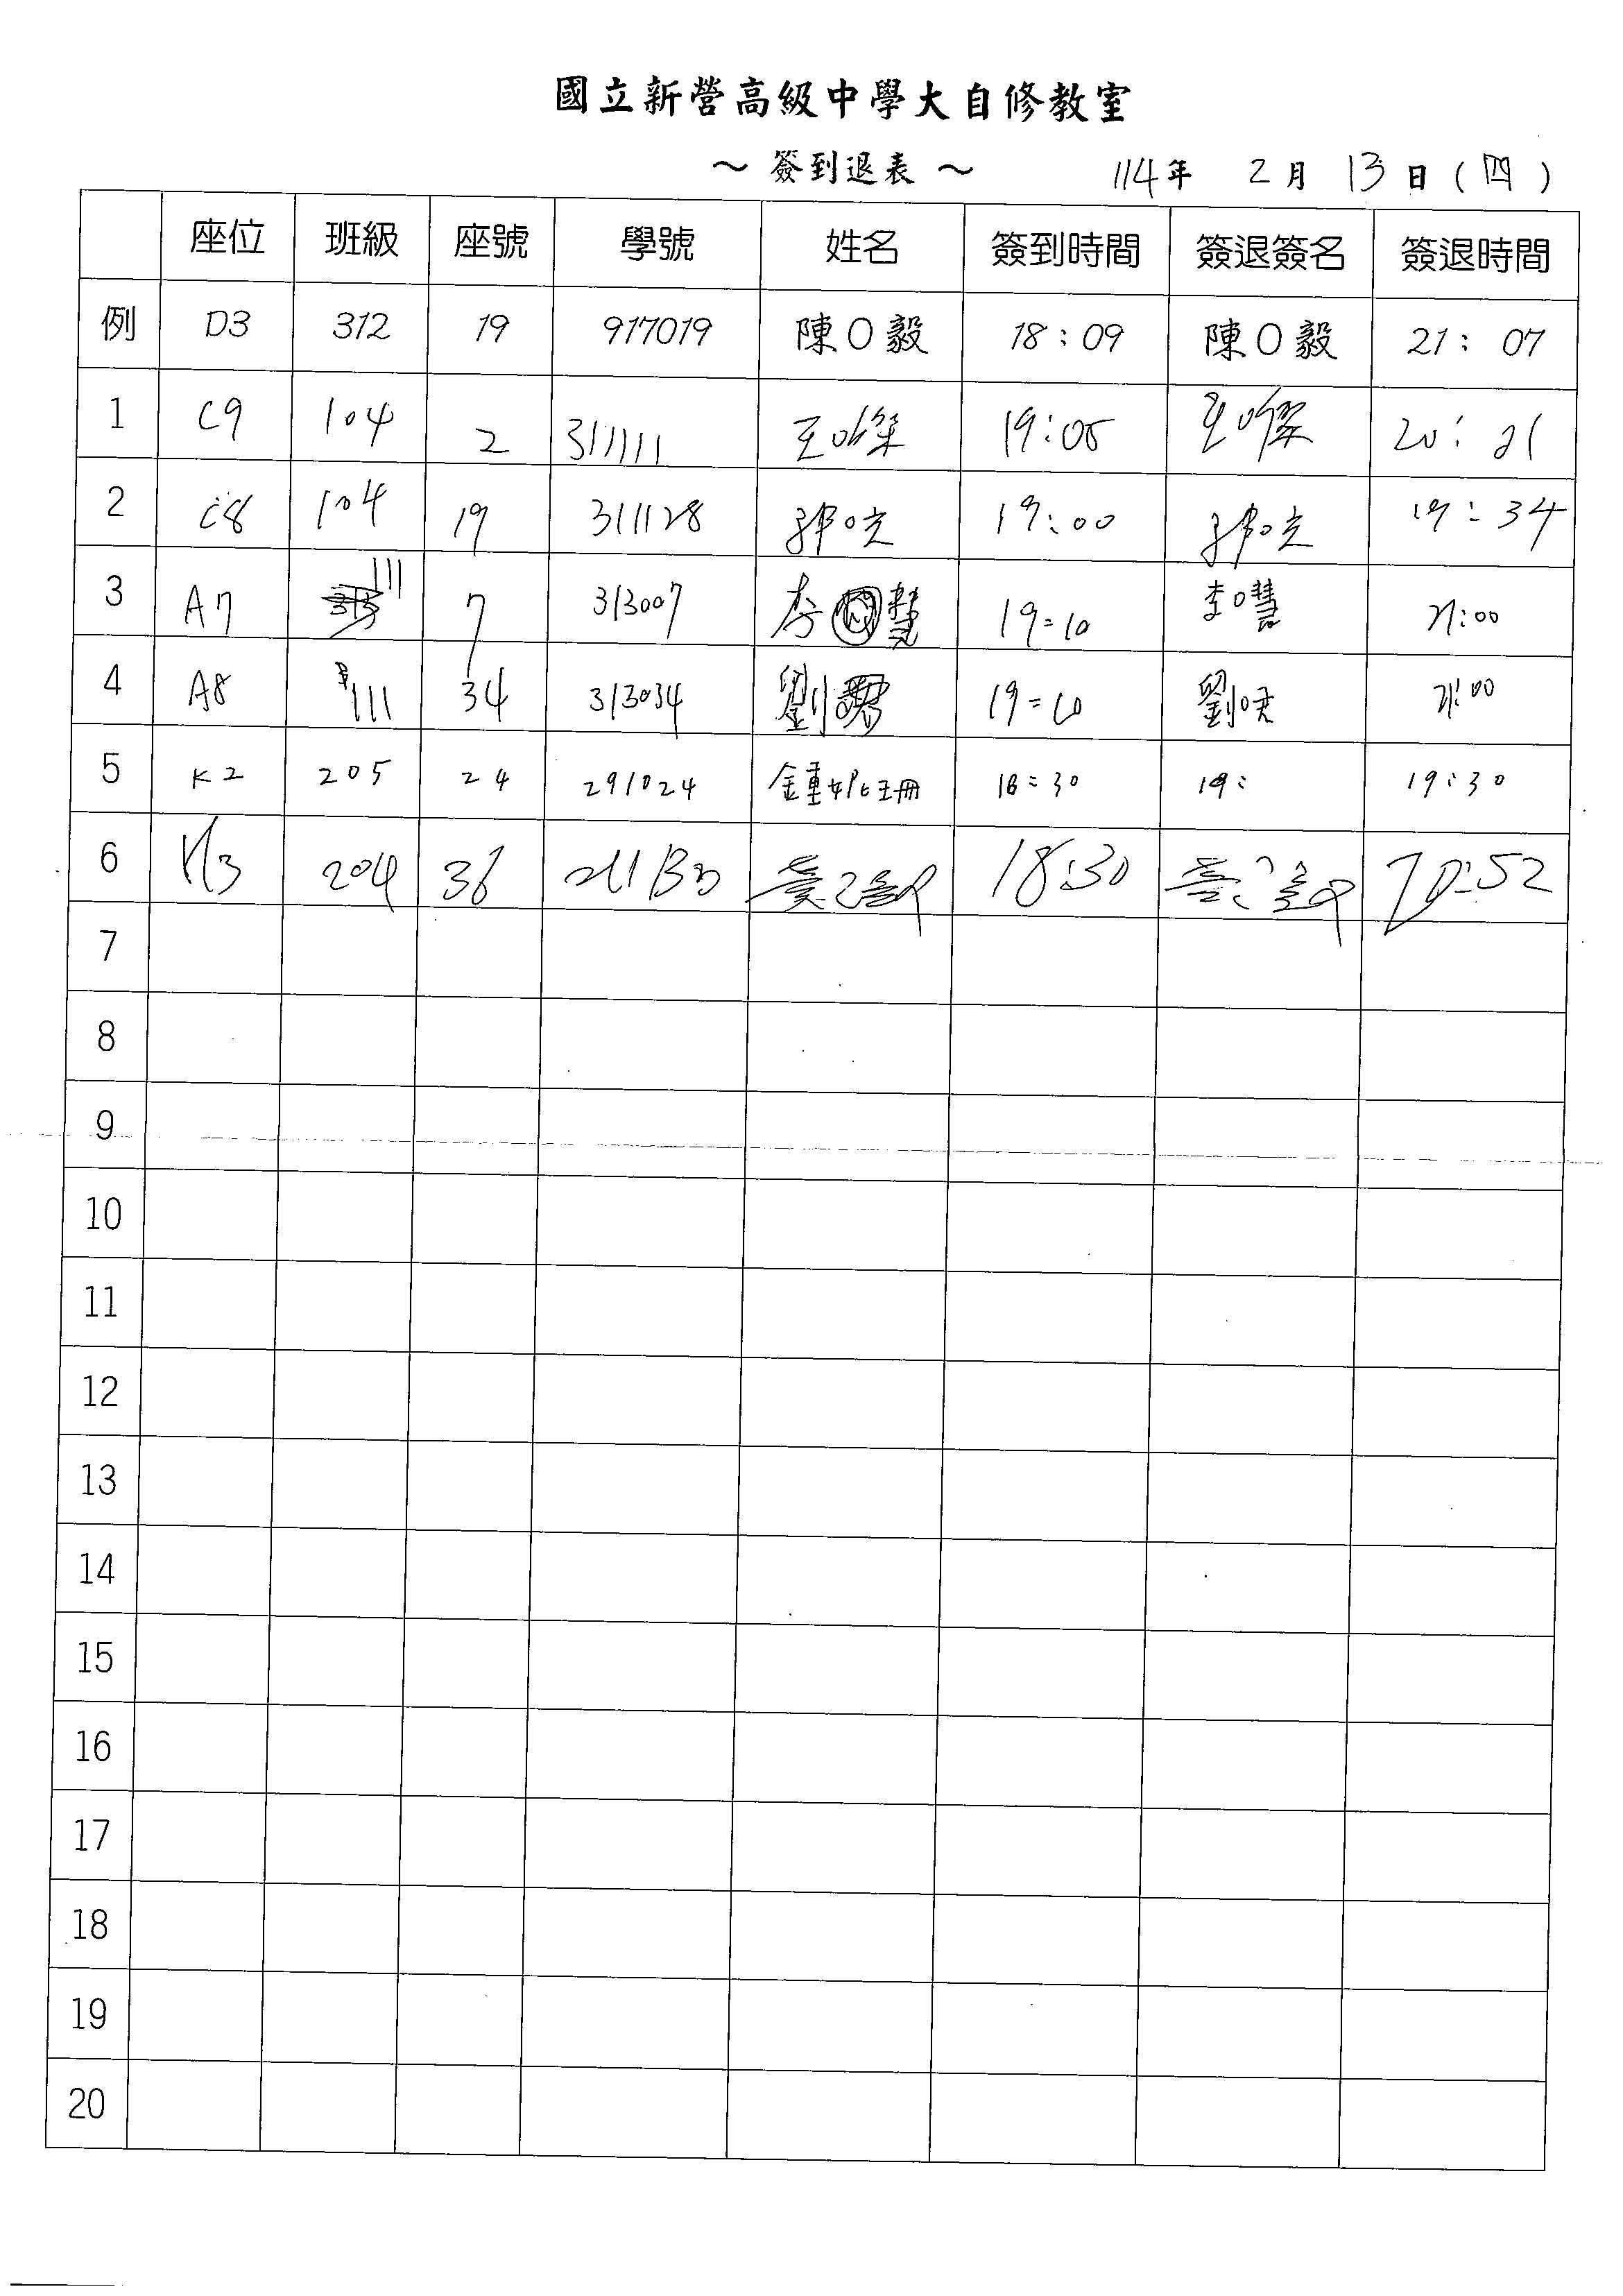 國立新營高級中學大自修教室
～ 簽到退表 ～ 114年 2月 13日 (四)
座位 班級 座號 學號 姓名 簽到時間 簽退簽名 簽退時間
例 D3 312 19 917019 陳O毅 18:09 陳O毅 21:07
1 C9 104 2 311111 王 19:05 王 20:21
2 C8 104 19 311128 郭 19:00 郭 19:34
3 A7 111 7 313007 李 慧 19:10 李O慧 21:00
4 A8 111 34 313034 劉 19:10 劉 21:00
5 K2 205 24 291024 18:30 19: 19:30
6 204 36 18:30 :52
7
8
9
10
11
12
13
14
15
16
17
18
19
20